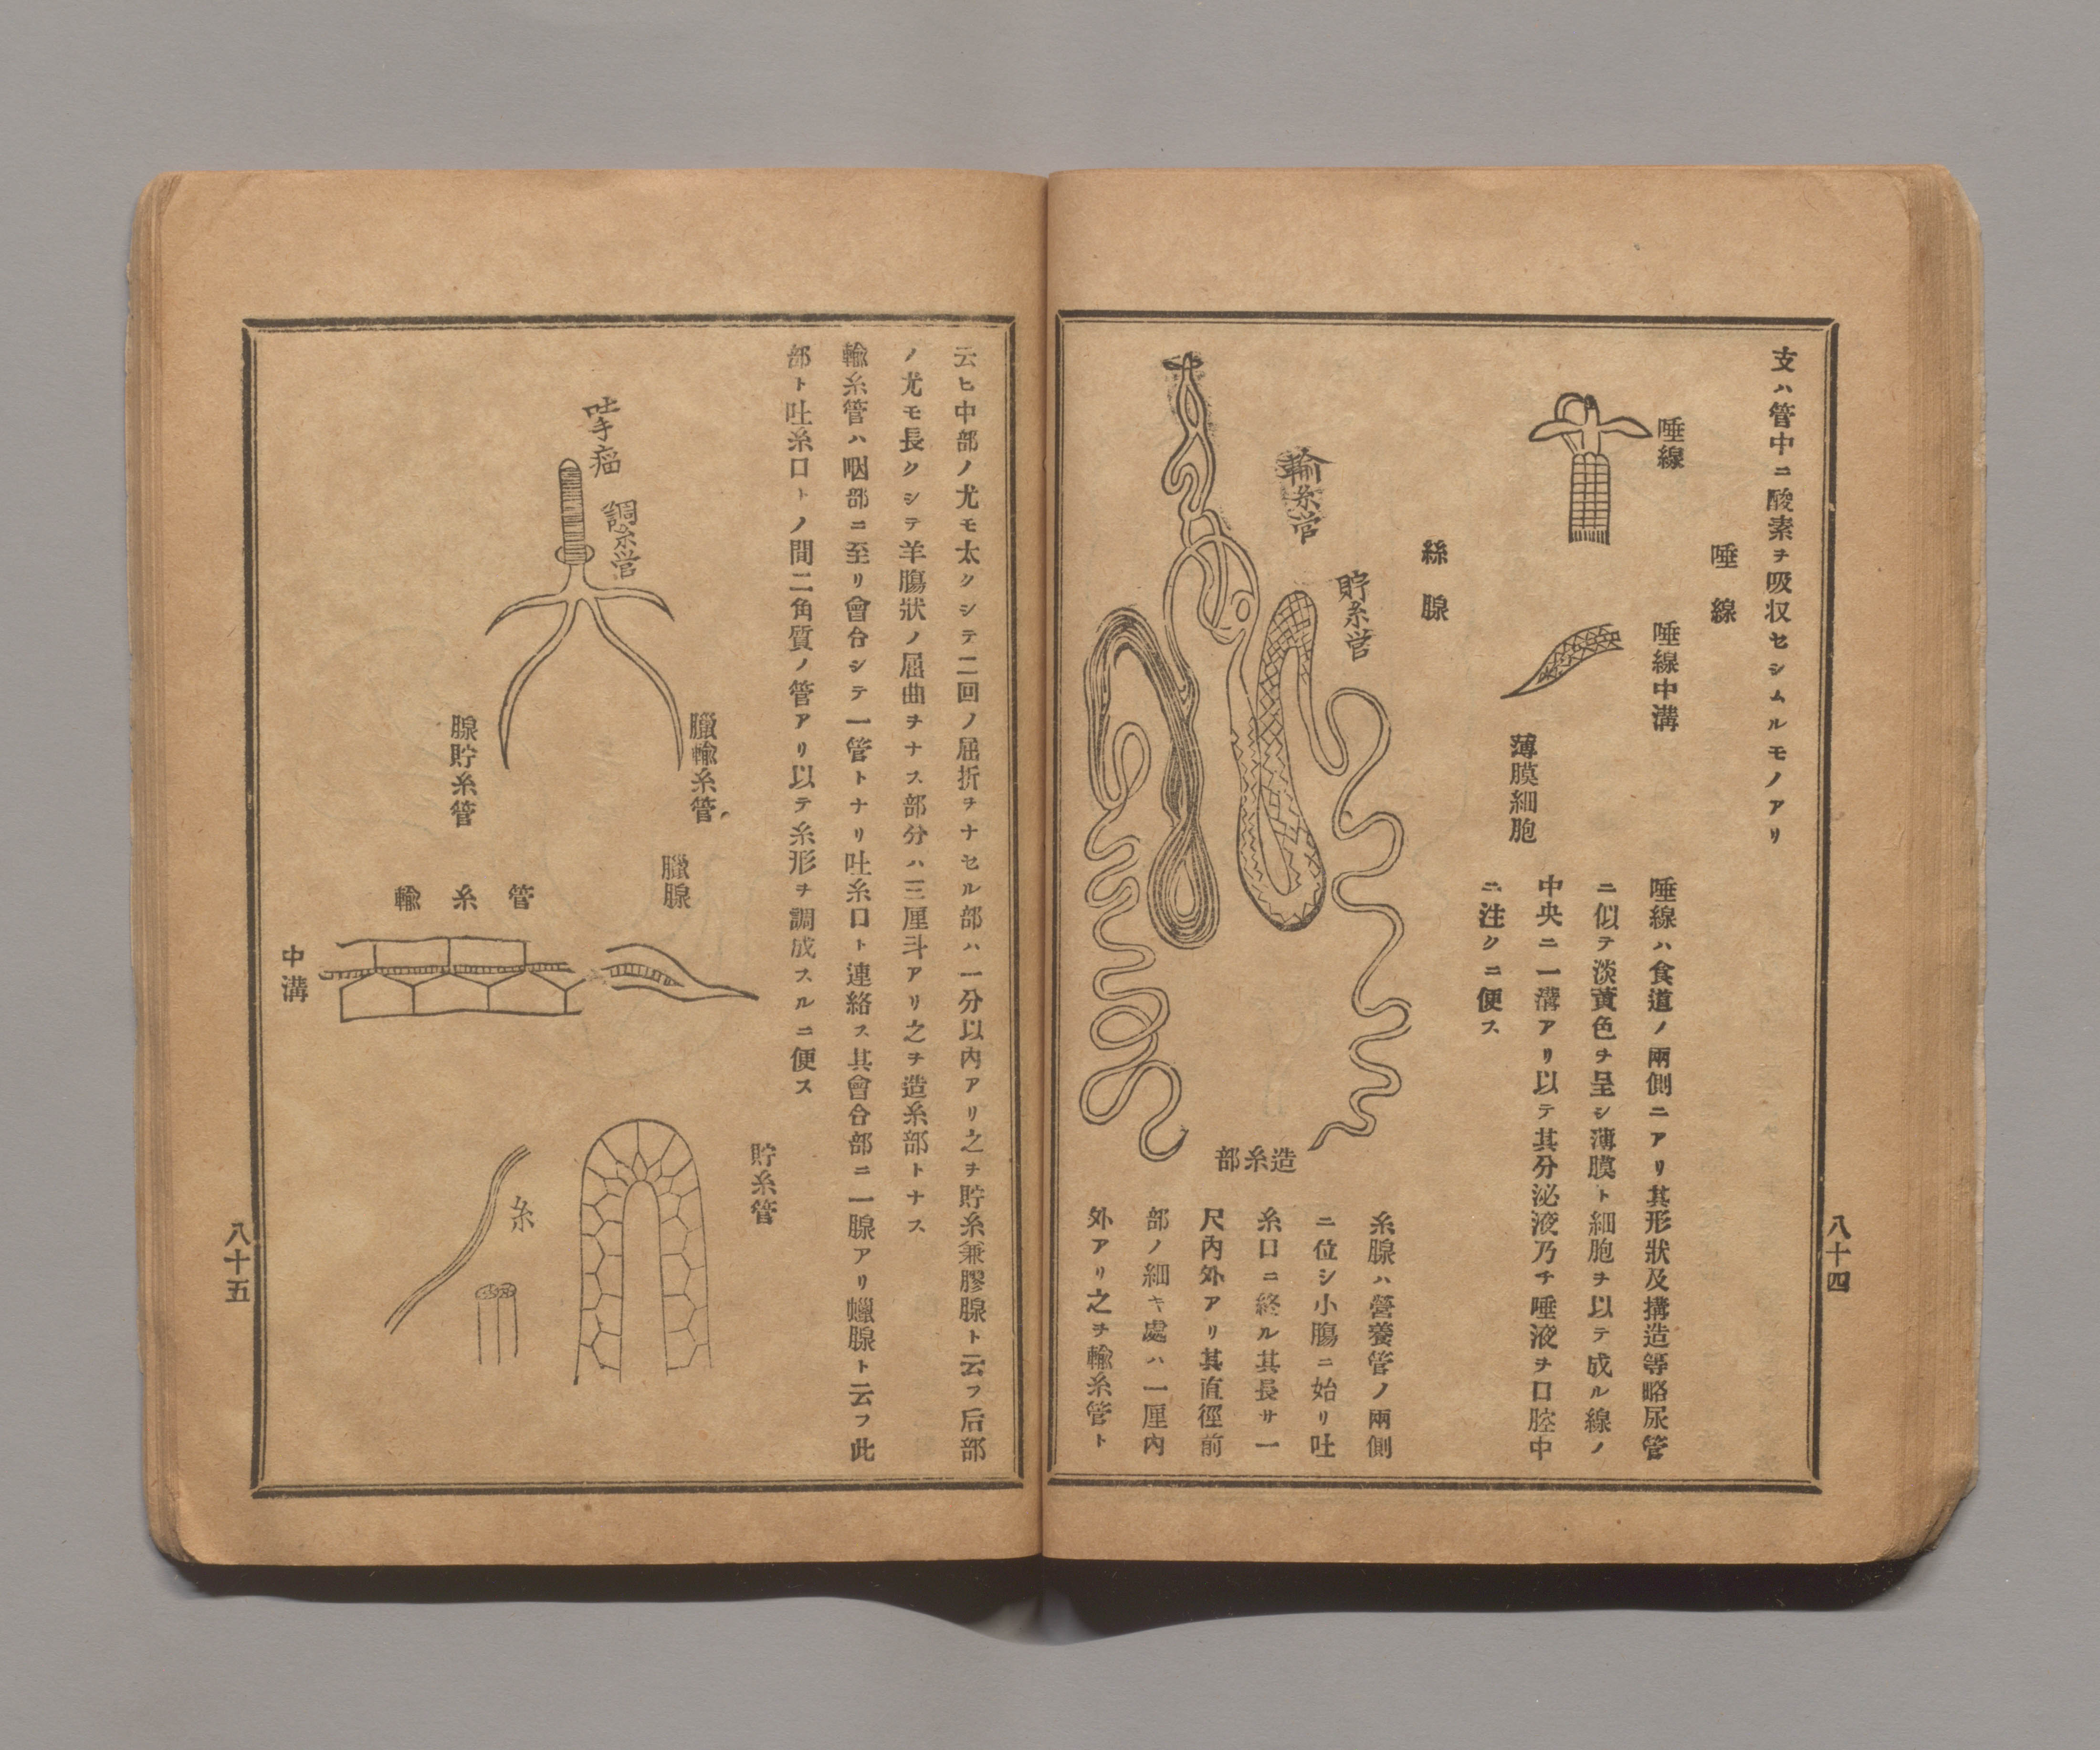 支ハ管中ニ酸素ヲ吸収セシムルモノアリ
唾線
唾線
唾線中溝
薄膜細胞
唾線ハ食道ノ兩側ニアリ其形狀及搆造等略尿管
ニ似テ淡黃色ヲ呈シ薄膜ト細胞ヲ以テ成ル線ノ
中央ニ一溝アリ以テ其分泌液乃チ唾液ヲ口腔中
ニ注クニ便ス
絲腺
輸糸管
貯糸管
造糸部
糸腺ハ營養管ノ兩側
ニ位シ小膓ニ始リ吐
糸口ニ終ル其長サ一
尺內外アリ其直徑前
部ノ細キ處ハ一厘內
外アリ之ヲ輸糸管ト
八十四
云ヒ中部ノ尤モ太クシテ二回ノ屈折ヲナセル部ハ一分以內アリ之ヲ貯糸兼膠腺ト云フ后部
ノ尤モ長クシテ羊膓狀ノ屈曲ヲナス部分ハ三厘斗アリ之ヲ造糸部トナス
輸糸管ハ咽部ニ至リ會合シテ一管トナリ吐糸口ト連絡ス其會合部ニ一腺アリ蠟腺ト云フ此
部ト吐糸口トノ間ニ角質ノ管アリ以テ糸形ヲ調成スルニ便ス
調糸管
臘輸糸管
腺貯糸管
臘腺
輸糸管
中溝
貯糸管
糸
八十五